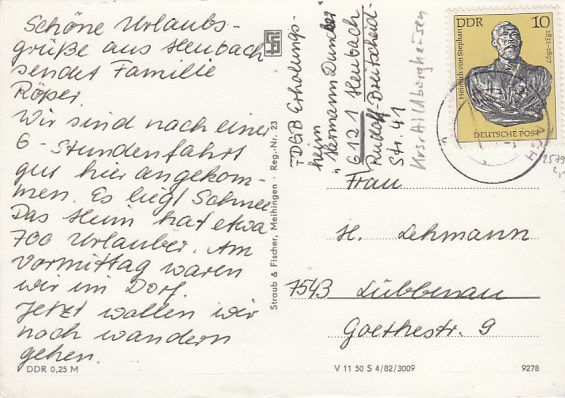 Schöne Urlaubs-
grüße aus Heubach
sendet Familie
Röper.
Wir sind nach einer
6-Stundenfahrt
gut hier angekom-
men. Es liegt Schnee.
Das Heim hat etwa
700 Urlauber. Am
Vormittag waren
wir im Dorf.
Jetzt wollen wir
noch wandern
gehen.
DDR 0,25 M
Straub & Fischer, Meiningen · Reg.-Nr. 23
FDGB Erholungs-
heim
"Hermann Duncker"
6121 Heubach
Rudolf-Breitscheid-
Str. 41
Krs. Hildburghausen
DDR 10
Heinrich von Stephan
1831-1897
DEUTSCHE POST
Frau
H. Lehmann
7543 Lübbenau
Goethestr. 9
V 11 50 S 4/82/3009
9278